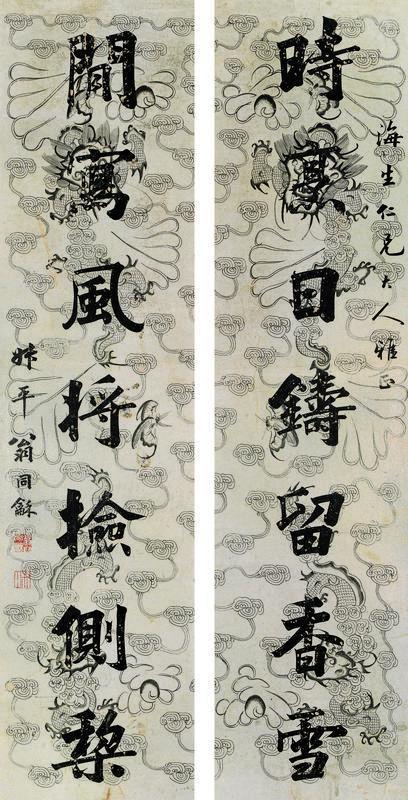 海生仁兄大人雅正
時日鑄留香雪
閒寫風将撿側棃
叔平翁同龢